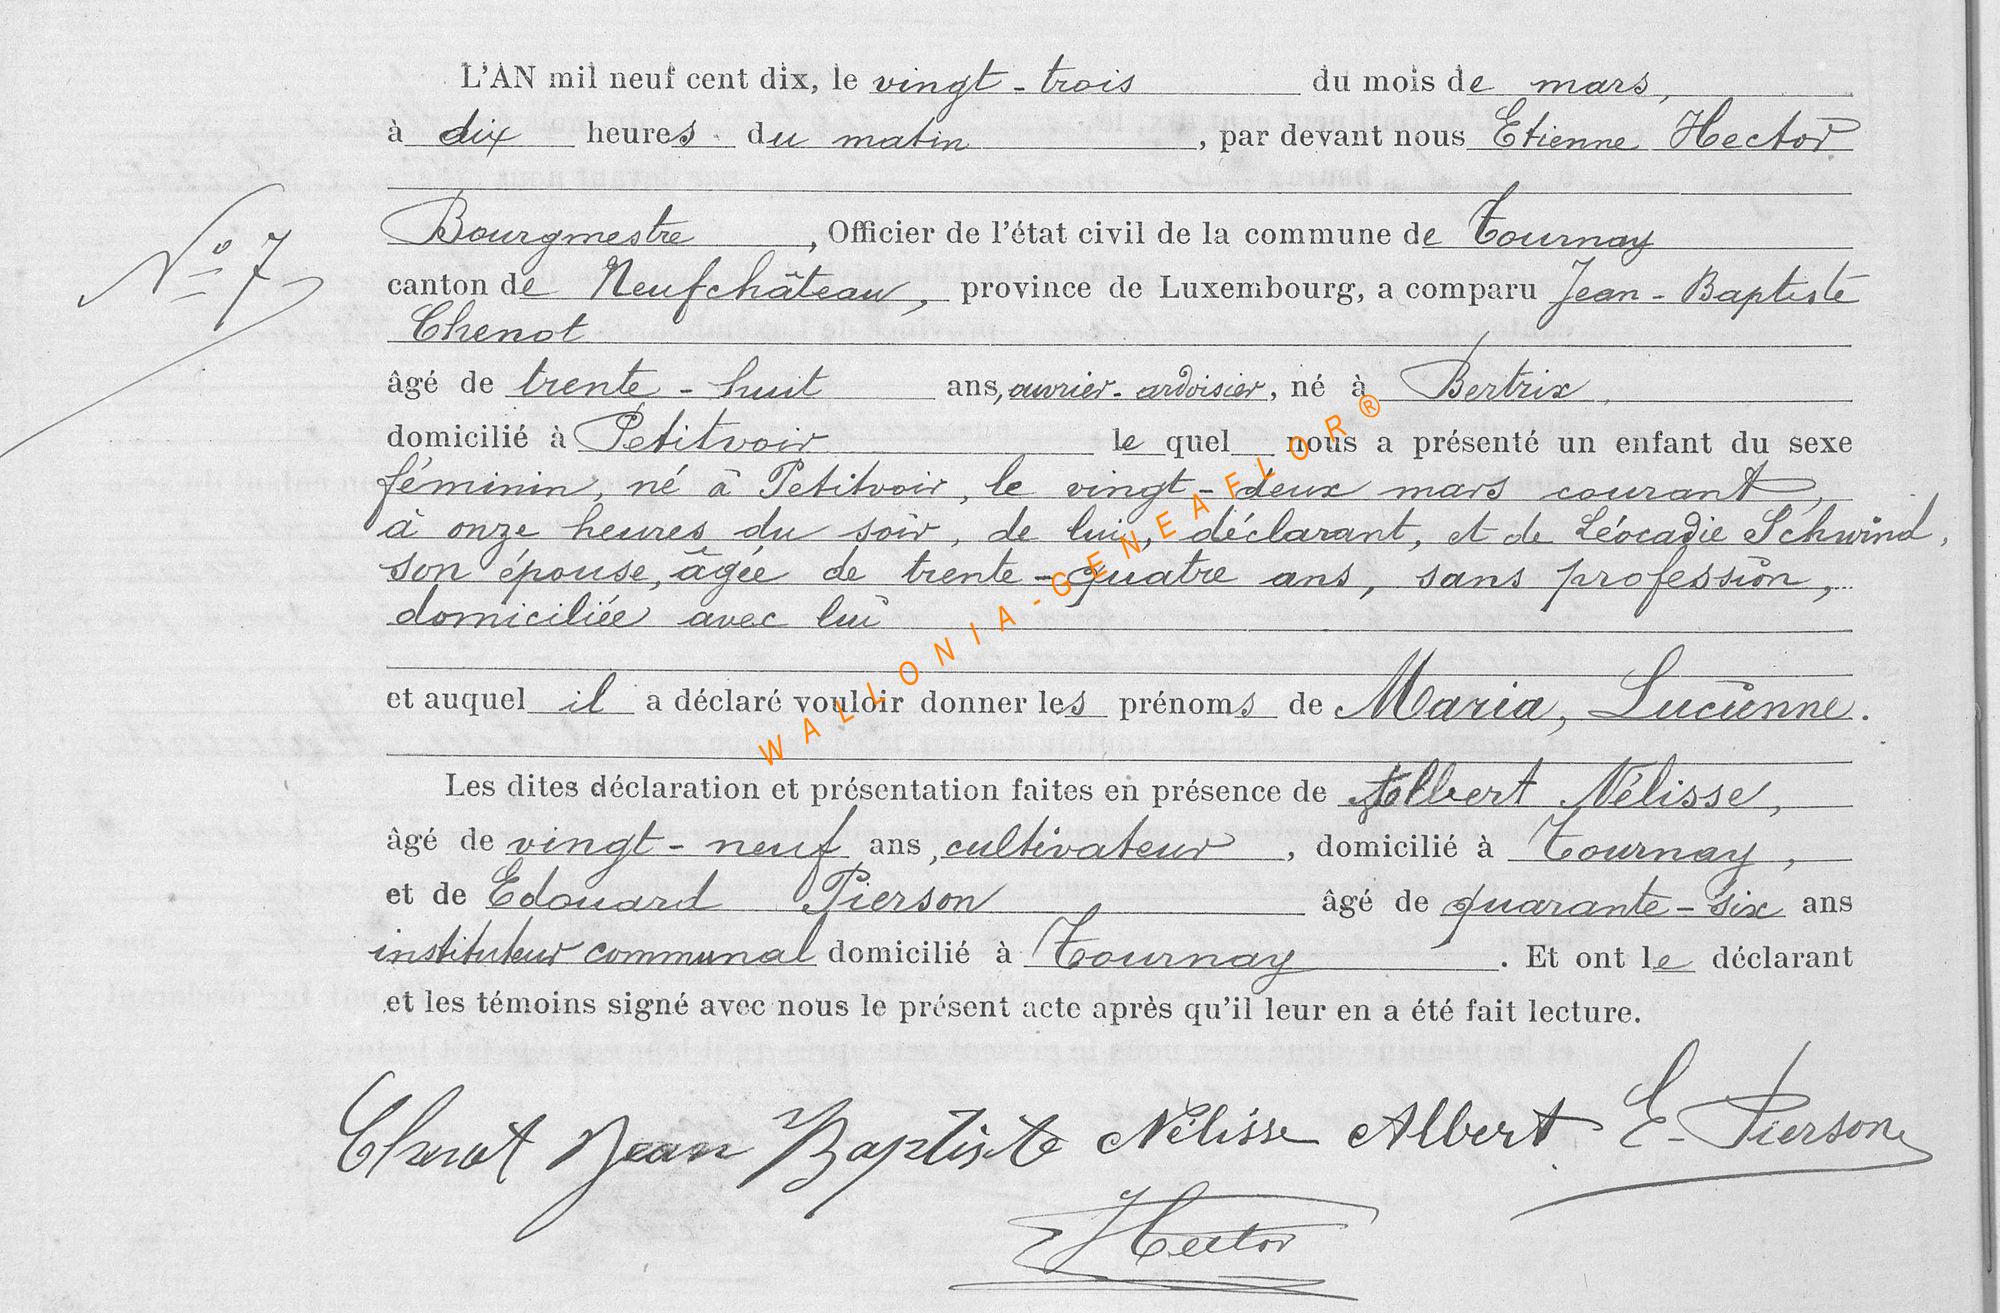 L'AN mil neuf cent dix, le vingt-trois du mois de mars,
à dix heures du matin, par devant nous Etienne Hector
N° 7
Bourgmestre, Officier de l'état civil de la commune de Tournay
canton de Neufchâteau, province de Luxembourg, a comparu Jean-Baptiste
Chenot
âgé de trente-huit ans, ouvrier-ardoisier, né à Bertrix,
domicilié à Petitvoir le quel nous a présenté un enfant du sexe
féminin, né à Petitvoir, le vingt-deux mars courant,
à onze heures du soir, de lui, déclarant, et de Léocadie Schwind,
son épouse, âgée de trente-quatre ans, sans profession,
domiciliée avec lui
et auquel il a déclaré vouloir donner les prénoms de Maria, Lucienne.
Les dites déclaration et présentation faites en présence de Albert Nélisse,
âgé de vingt-neuf ans, cultivateur, domicilié à Tournay,
et de Edouard Pierson âgé de quarante-six ans
instituteur communal domicilié à Tournay. Et ont le déclarant
et les témoins signé avec nous le présent acte après qu'il leur en a été fait lecture.
Chenot Jean Baptiste Nélisse Albert E. Pierson
Hector
WALLONIA-GENEAFLOR®